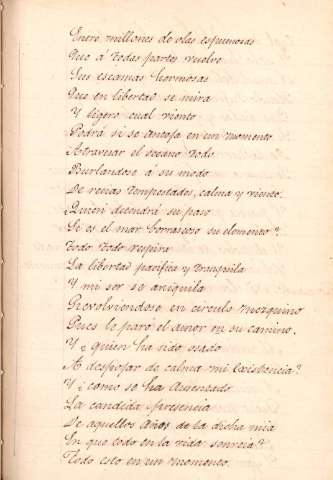 Entre millones de olas espumosas
Que á todas partes vuelve
Sus escamas hermosas
Que en libertad se mira
Y ligero cual viento
Podrá si se antoja en un momento
Atravesar el oceano todo
Burlandose á su modo
De recias tempestades, calma y viento.
Quien detendrá su paso
Si es el mar borrascoso su elemento?
Todo todo respira
La libertad pacifica y tranquila
Y mi ser se aniquila
Revolviendose en circulo mezquino
Pues le paró el amor en su camino.
Y ¿quien ha sido osado
A despojar de calma mi existencia?
Y ¿como se ha ausentado
La candida presencia
De aquellos años de la dicha mia
En que todo en la vida sonreia?
Todo esto en un momento.